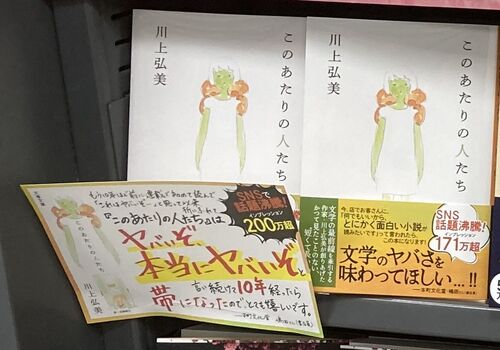 このあたりの人たち
川上弘美
このあたりの人たち
川上弘美
文学の最前線を牽引する
作家・川上弘美が創りあげた
かつて見たことのない、
今、店でお客さんに、
「何でもいいから、
とにかく面白い小説が
読みたいです」って言われたら、
この本になります!
SNS
話題沸騰!
インプレッション
171万超
文学のヤバさを
味わってほしい…!!
本町文化堂・嶋田さん(書店員)
初めて読んで
「これはヤバいぞ…」と思って以来
『このあたりの人たち』は、
ヤバいぞ、
本当にヤバいぞと
言い続けて10年経ったら
帯になったのでとても嬉しいです。
本町文化堂
SNSで
話題沸騰!
インプレッション
200万超
このあたりの人たち
川上弘美